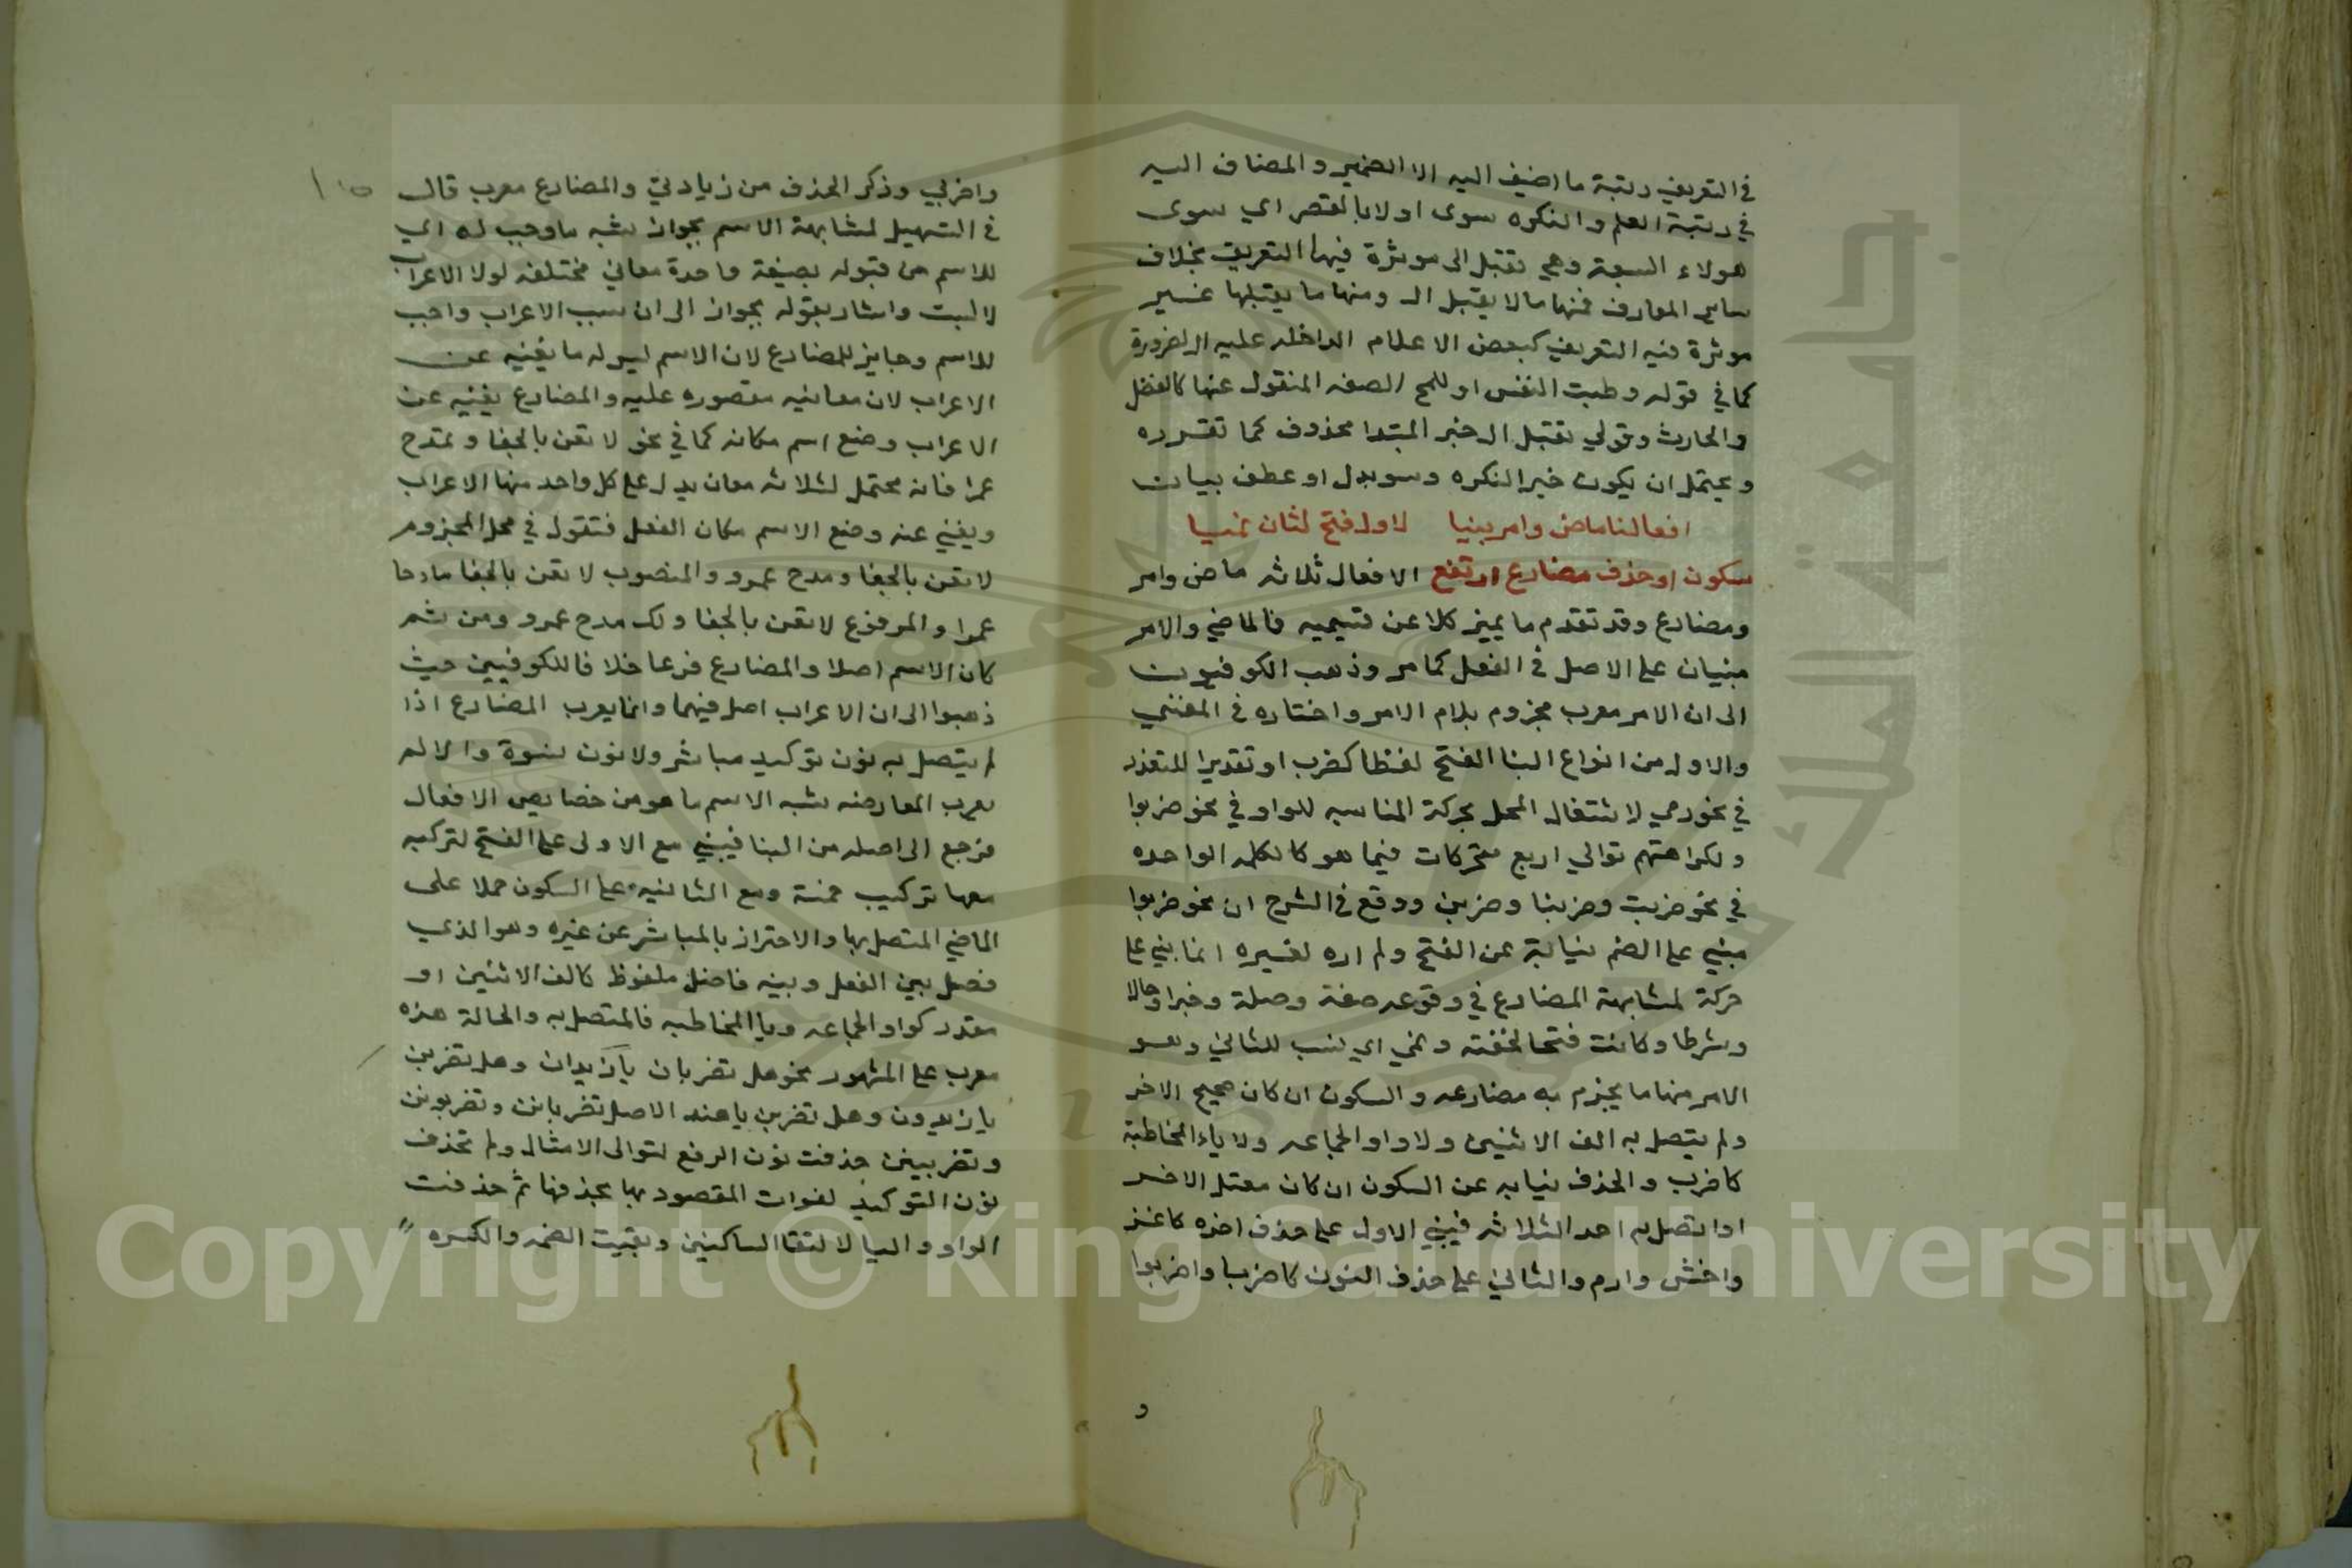 في التعريف رتبة ما اضيف اليه الا الضمير والمضاف اليه
في رتبة العلم والنكره سوى اولا بالقصر اي سوى
هولاء السبعة وهي تقبل ال موثرة فيها التعريف بخلاف
ساير المعارف فمنها ما لا يقبل ال ومنها ما يقبلها غير
موثرة فيه التعريف كبعض الاعلام الداخله عليه ال لضرورة
كما في قوله وطبت النفس او للمح الصفه المنقول عنها كالفضل
والحارث وقولي تقبل ال خبر المبتدا محذوف كما تقرره
ويحتمل ان يكون خبر النكره وسو بدل او عطف بيان
افعالنا ماض وامر بنيا لاول فتح لثان نميا
سكون او حذف مضارع ارتفع الافعال ثلاثه ماض وامر
ومضارع وقد تقدم ما يميز كلا عن قسيميه فالماضي والامر
مبنيان على الاصل في الفعل كما مر وذهب الكوفيون
الى ان الامر معرب مجزوم بلام الامر واختاره في المغني
والاول من انواع البنا الفتح لفظا كضرب او تقديرا للتعذر
في نحو رمي لاشتغال المحل بحركة المناسبه للواو في نحو ضربوا
ولكراهتهم توالي اربع متحركات فيما هو كالكلمه الواحده
في نحو ضربت وضربنا وضربن ووقع في الشرح ان نحو ضربوا
مبني على الضم نيابة عن الفتح ولم اره لغيره انما بني على
حركة لمشابهة المضارع في وقوعه صفة وصلة وخبرا وحالا
وشرطا وكانت فتحا لخفته ونمي اي نسب للثاني وهو
الامر منها ما يجزم به مضارعه والسكون ان كان صحيح الاخر
ولم يتصل به الف الاثنين ولا واو الجماعه ولا ياء المخاطبة
كاضرب والحذف نيابه عن السكون ان كان معتل الاخر
او اتصل به احد الثلاثه فيبني الاول على حذف اخره كاغز
واخش وارم والثاني على حذف النون كاضربا واضربوا
و
واضربي وذكر الحذف من زيادتي والمضارع معرب قال
في التسهيل لمشابهة الاسم بجواز شبه ما وجب له اي
للاسم من قبوله بصيغة واحدة معاني مختلفه لولا الاعراب
لالتبست واشار بقوله بجواز الى ان سبب الاعراب واجب
للاسم وجايز للمضارع لان الاسم ليس له ما يغنيه عن
الاعراب لان معانيه مقصوره عليه والمضارع يغنيه عن
الاعراب وضع اسم مكانه كما في نحو لا تعن بالجفا وتمدح
عمرا فانه محتمل لثلاثه معان يدل على كل واحد منها الاعراب
ويغني عنه وضع الاسم مكان الفعل فتقول في محل المجزوم
لا تعن بالجفا ومدح عمرو والمنصوب لا تعن بالجفا مادحا
عمرا والمرفوع لا تعن بالجفا ولك مدح عمرو ومن ثم
كان الاسم اصلا والمضارع فرعا خلافا للكوفيين حيث
ذهبوا الى ان الاعراب اصل فيهما وانما يعرب المضارع اذا
لم يتصل به نون توكيد مباشر ولا نون نسوة والا لم
يعرب لمعارضه شبه الاسم ما هو من خصايص الافعال
فرجع الى اصله من البنا فيبني مع الاولى على الفتح لتركبه
معها تركيب خمسة ومع الثانيه على السكون حملا على
الماضي المتصل بها والاحتراز بالمباشر عن غيره وهو الذي
فصل بين الفعل وبينه فاصل ملفوظ كالف الاثنين او
مقدر كواو الجماعه ويا المخاطبه فالمتصل به والحالة هذه
معرب على المشهور نحو هل تضربان يا زيدان وهل تضربن
يا زيدون وهل تضربن يا هند الاصل تضربانن وتضربونن
وتضربينن حذفت نون الرفع لتوالى الامثال ولم تحذف
نون التوكيد لفوات المقصود بها بحذفها ثم حذفت
الواو واليا لالتقا الساكنين وبقيت الضمه والكسره
Copyright © King Saud University